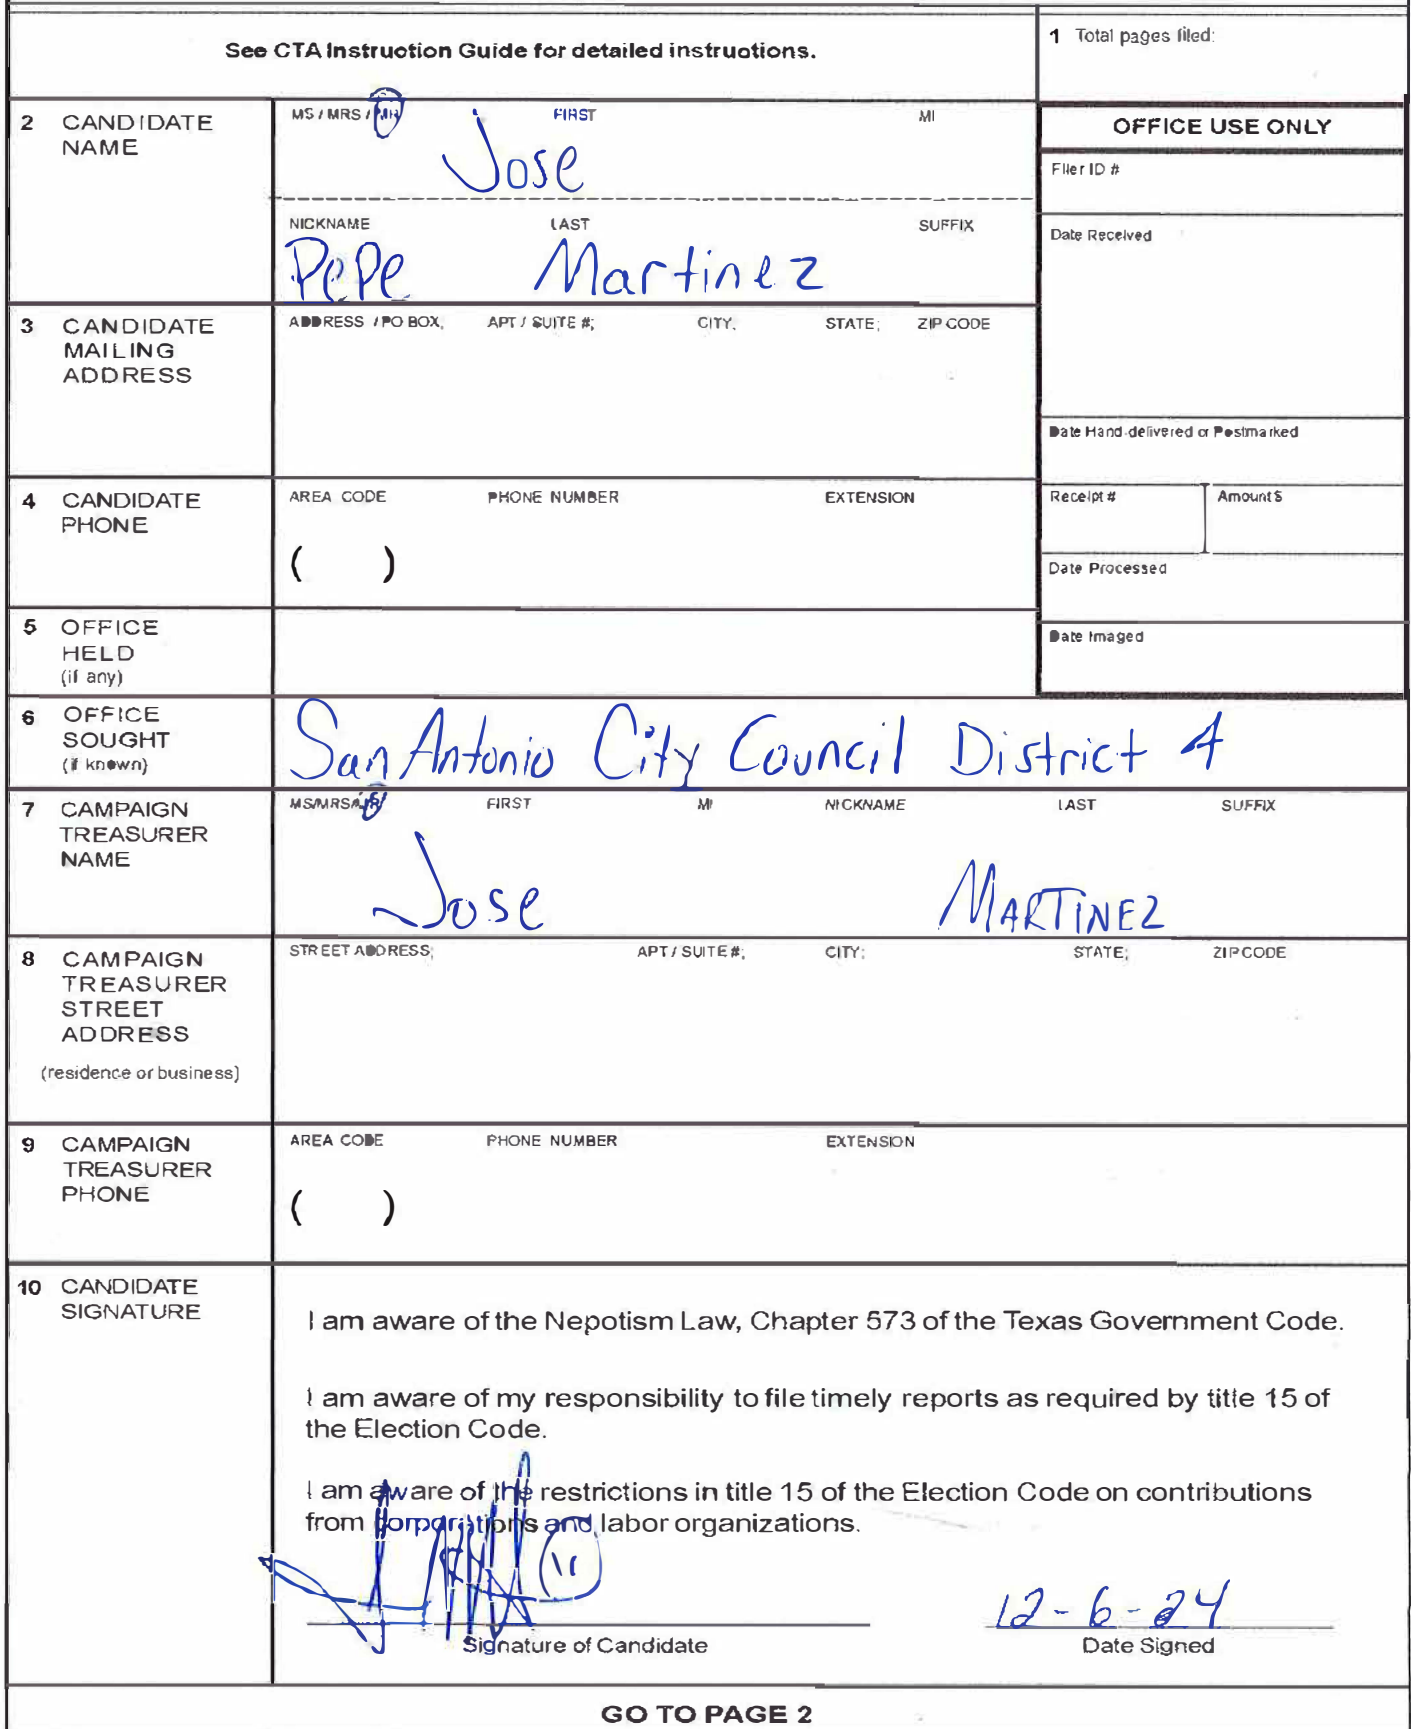 See CTA Instruction Guide for detailed instructions.
1 Total pages filed:
2 CANDIDATE NAME
MS / MRS / MR FIRST MI
Jose
NICKNAME LAST SUFFIX
PePe Martinez
OFFICE USE ONLY
Filer ID #
Date Received
Date Hand-delivered or Postmarked
Receipt # Amount $
Date Processed
Date Imaged
3 CANDIDATE MAILING ADDRESS
ADDRESS / PO BOX; APT / SUITE #; CITY; STATE; ZIP CODE
4 CANDIDATE PHONE
AREA CODE PHONE NUMBER EXTENSION
( )
5 OFFICE HELD
(if any)
6 OFFICE SOUGHT
(if known)
San Antonio City Council District 4
7 CAMPAIGN TREASURER NAME
MS/MRS/MR FIRST MI NICKNAME LAST SUFFIX
Jose MARTiNEZ
8 CAMPAIGN TREASURER STREET ADDRESS
(residence or business)
STREET ADDRESS; APT / SUITE #; CITY; STATE; ZIP CODE
9 CAMPAIGN TREASURER PHONE
AREA CODE PHONE NUMBER EXTENSION
( )
10 CANDIDATE SIGNATURE
I am aware of the Nepotism Law, Chapter 573 of the Texas Government Code.
I am aware of my responsibility to file timely reports as required by title 15 of
the Election Code.
I am aware of the restrictions in title 15 of the Election Code on contributions
from corporations and labor organizations.
12-6-24
Signature of Candidate Date Signed
GO TO PAGE 2